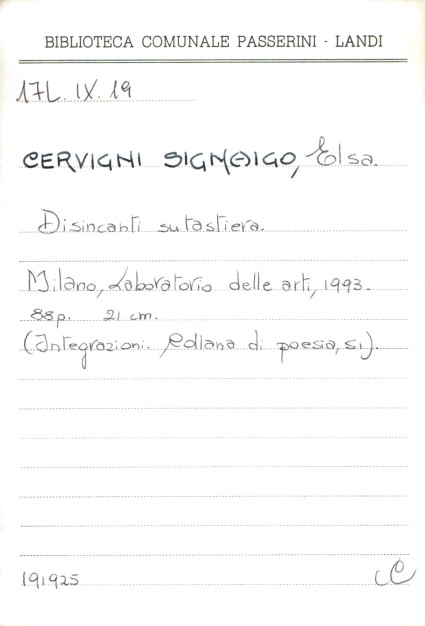 BIBLIOTECA COMUNALE PASSERINI - LANDI
17L. IX. 19
CERVIGNI SIGNAIGO, Elsa.
Disincanti su tastiera.
Milano, Laboratorio delle arti, 1993.
88p. 21 cm.
(Integrazioni. Collana di poesia, s1).
191925
C